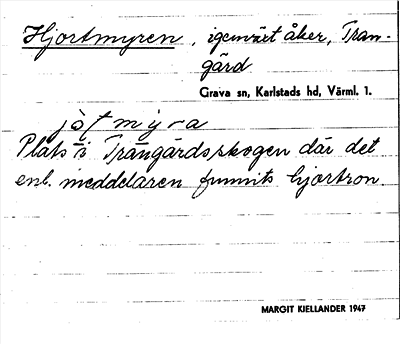 Hjortmyren, igenväxt åker, Tran-
gård
Grava sn, Karlstads hd, Värml. 1.
jòtmyra
Plats i Trångårdsskogen där det
enl. meddelaren funnits hjortron.
MARGIT KJELLANDER 1947